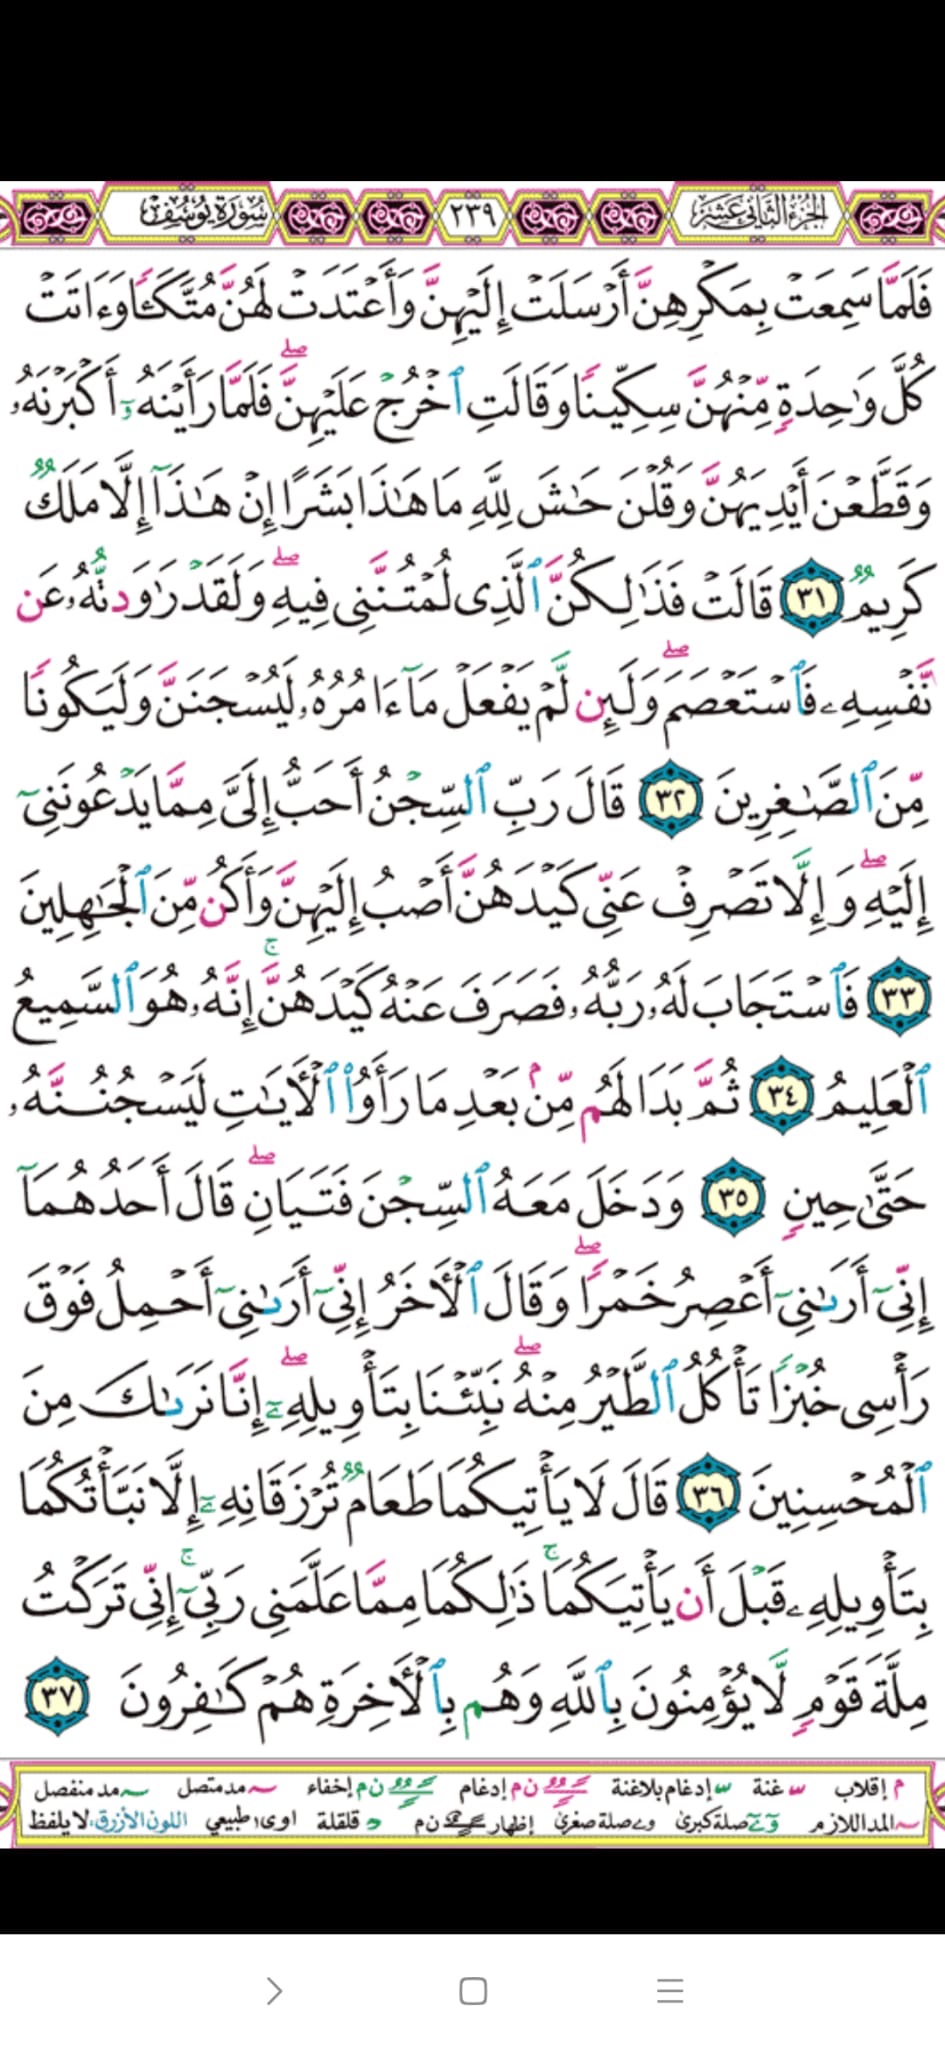 الجزء الثاني عشر ٢٣٩ سورة يوسف
فَلَمَّا سَمِعَتْ بِمَكْرِهِنَّ أَرْسَلَتْ إِلَيْهِنَّ وَأَعْتَدَتْ لَهُنَّ مُتَّكَـًٔا وَءَاتَتْ
كُلَّ وَٰحِدَةٍ مِّنْهُنَّ سِكِّينًا وَقَالَتِ ٱخْرُجْ عَلَيْهِنَّ ۖ فَلَمَّا رَأَيْنَهُۥٓ أَكْبَرْنَهُۥ
وَقَطَّعْنَ أَيْدِيَهُنَّ وَقُلْنَ حَٰشَ لِلَّهِ مَا هَٰذَا بَشَرًا إِنْ هَٰذَآ إِلَّا مَلَكٌ
كَرِيمٌ ٣١ قَالَتْ فَذَٰلِكُنَّ ٱلَّذِى لُمْتُنَّنِى فِيهِ ۖ وَلَقَدْ رَٰوَدتُّهُۥ عَن
نَّفْسِهِۦ فَٱسْتَعْصَمَ ۖ وَلَئِن لَّمْ يَفْعَلْ مَآ ءَامُرُهُۥ لَيُسْجَنَنَّ وَلَيَكُونًا
مِّنَ ٱلصَّٰغِرِينَ ٣٢ قَالَ رَبِّ ٱلسِّجْنُ أَحَبُّ إِلَىَّ مِمَّا يَدْعُونَنِىٓ
إِلَيْهِ ۖ وَإِلَّا تَصْرِفْ عَنِّى كَيْدَهُنَّ أَصْبُ إِلَيْهِنَّ وَأَكُن مِّنَ ٱلْجَٰهِلِينَ
٣٣ فَٱسْتَجَابَ لَهُۥ رَبُّهُۥ فَصَرَفَ عَنْهُ كَيْدَهُنَّ ۚ إِنَّهُۥ هُوَ ٱلسَّمِيعُ
ٱلْعَلِيمُ ٣٤ ثُمَّ بَدَا لَهُم مِّنۢ بَعْدِ مَا رَأَوُا۟ ٱلْـَٔايَٰتِ لَيَسْجُنُنَّهُۥ
حَتَّىٰ حِينٍ ٣٥ وَدَخَلَ مَعَهُ ٱلسِّجْنَ فَتَيَانِ ۖ قَالَ أَحَدُهُمَآ
إِنِّىٓ أَرَىٰنِىٓ أَعْصِرُ خَمْرًا ۖ وَقَالَ ٱلْـَٔاخَرُ إِنِّىٓ أَرَىٰنِىٓ أَحْمِلُ فَوْقَ
رَأْسِى خُبْزًا تَأْكُلُ ٱلطَّيْرُ مِنْهُ ۖ نَبِّئْنَا بِتَأْوِيلِهِۦٓ ۖ إِنَّا نَرَىٰكَ مِنَ
ٱلْمُحْسِنِينَ ٣٦ قَالَ لَا يَأْتِيكُمَا طَعَامٌ تُرْزَقَانِهِۦٓ إِلَّا نَبَّأْتُكُمَا
بِتَأْوِيلِهِۦ قَبْلَ أَن يَأْتِيَكُمَا ۚ ذَٰلِكُمَا مِمَّا عَلَّمَنِى رَبِّىٓ ۚ إِنِّى تَرَكْتُ
مِلَّةَ قَوْمٍ لَّا يُؤْمِنُونَ بِٱللَّهِ وَهُم بِٱلْـَٔاخِرَةِ هُمْ كَٰفِرُونَ ٣٧
م إقلاب غنة إدغام بلاغنة ن م إدغام ن م إخفاء مد متصل مد منفصل
المد اللازم صلة كبرى صلة صغرى إظهار ن م قلقلة اوى طبيعي اللون الأزرق، لا يلفظ